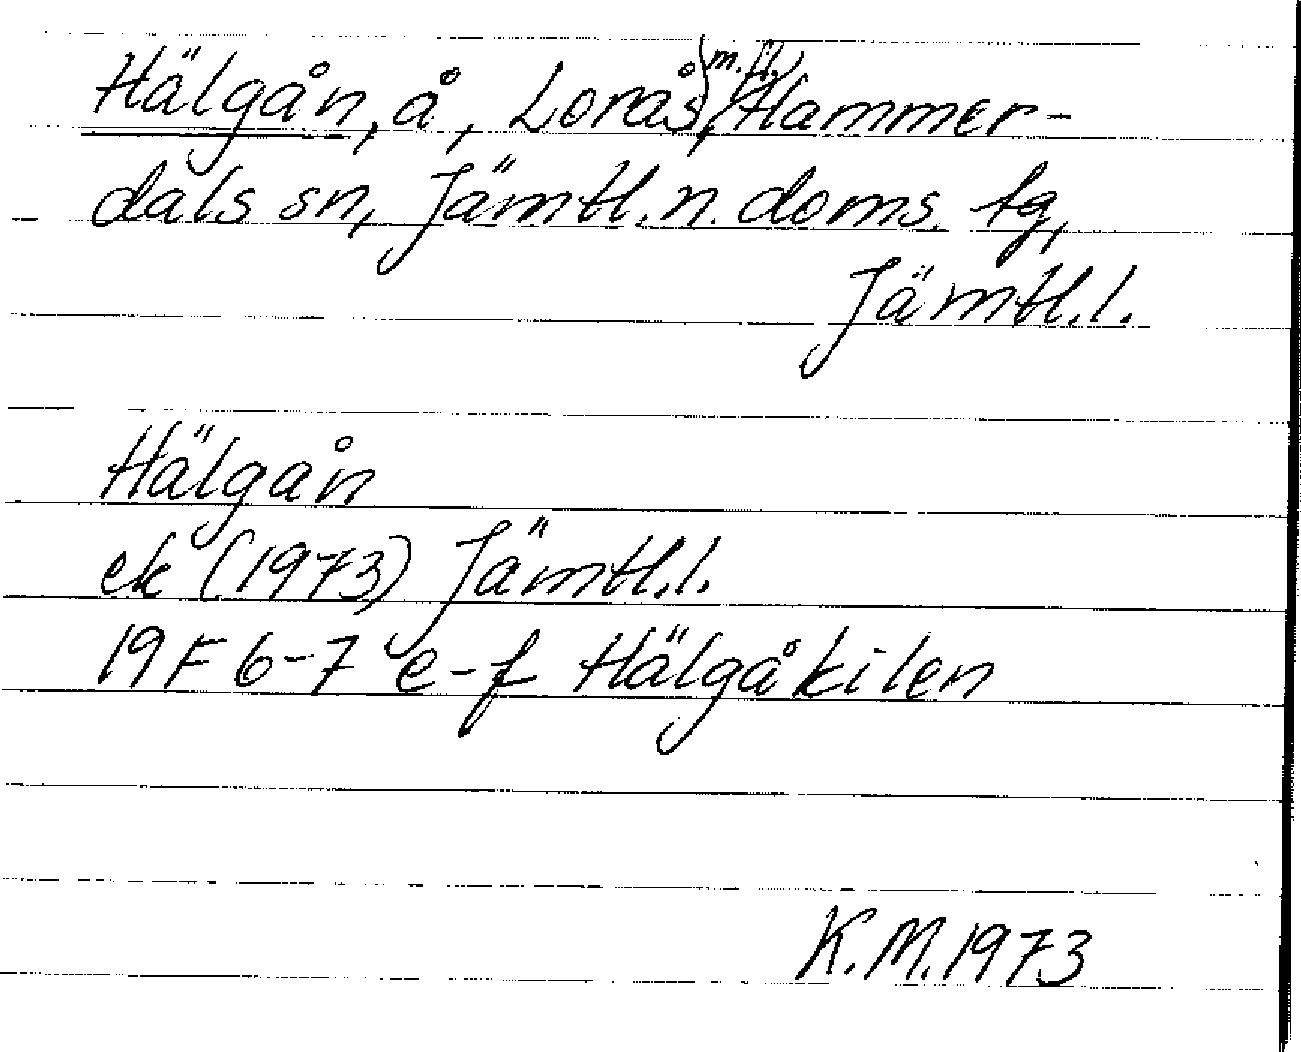 Hälgån, å, Lorås, m.fl., Hammer-
dals sn, Jämtl. n. doms. tg,
Jämtl. l.
Hälgån
ek (1973) Jämtl. l.
19F 6-7 e-f Hälgåkilen
K.M. 1973